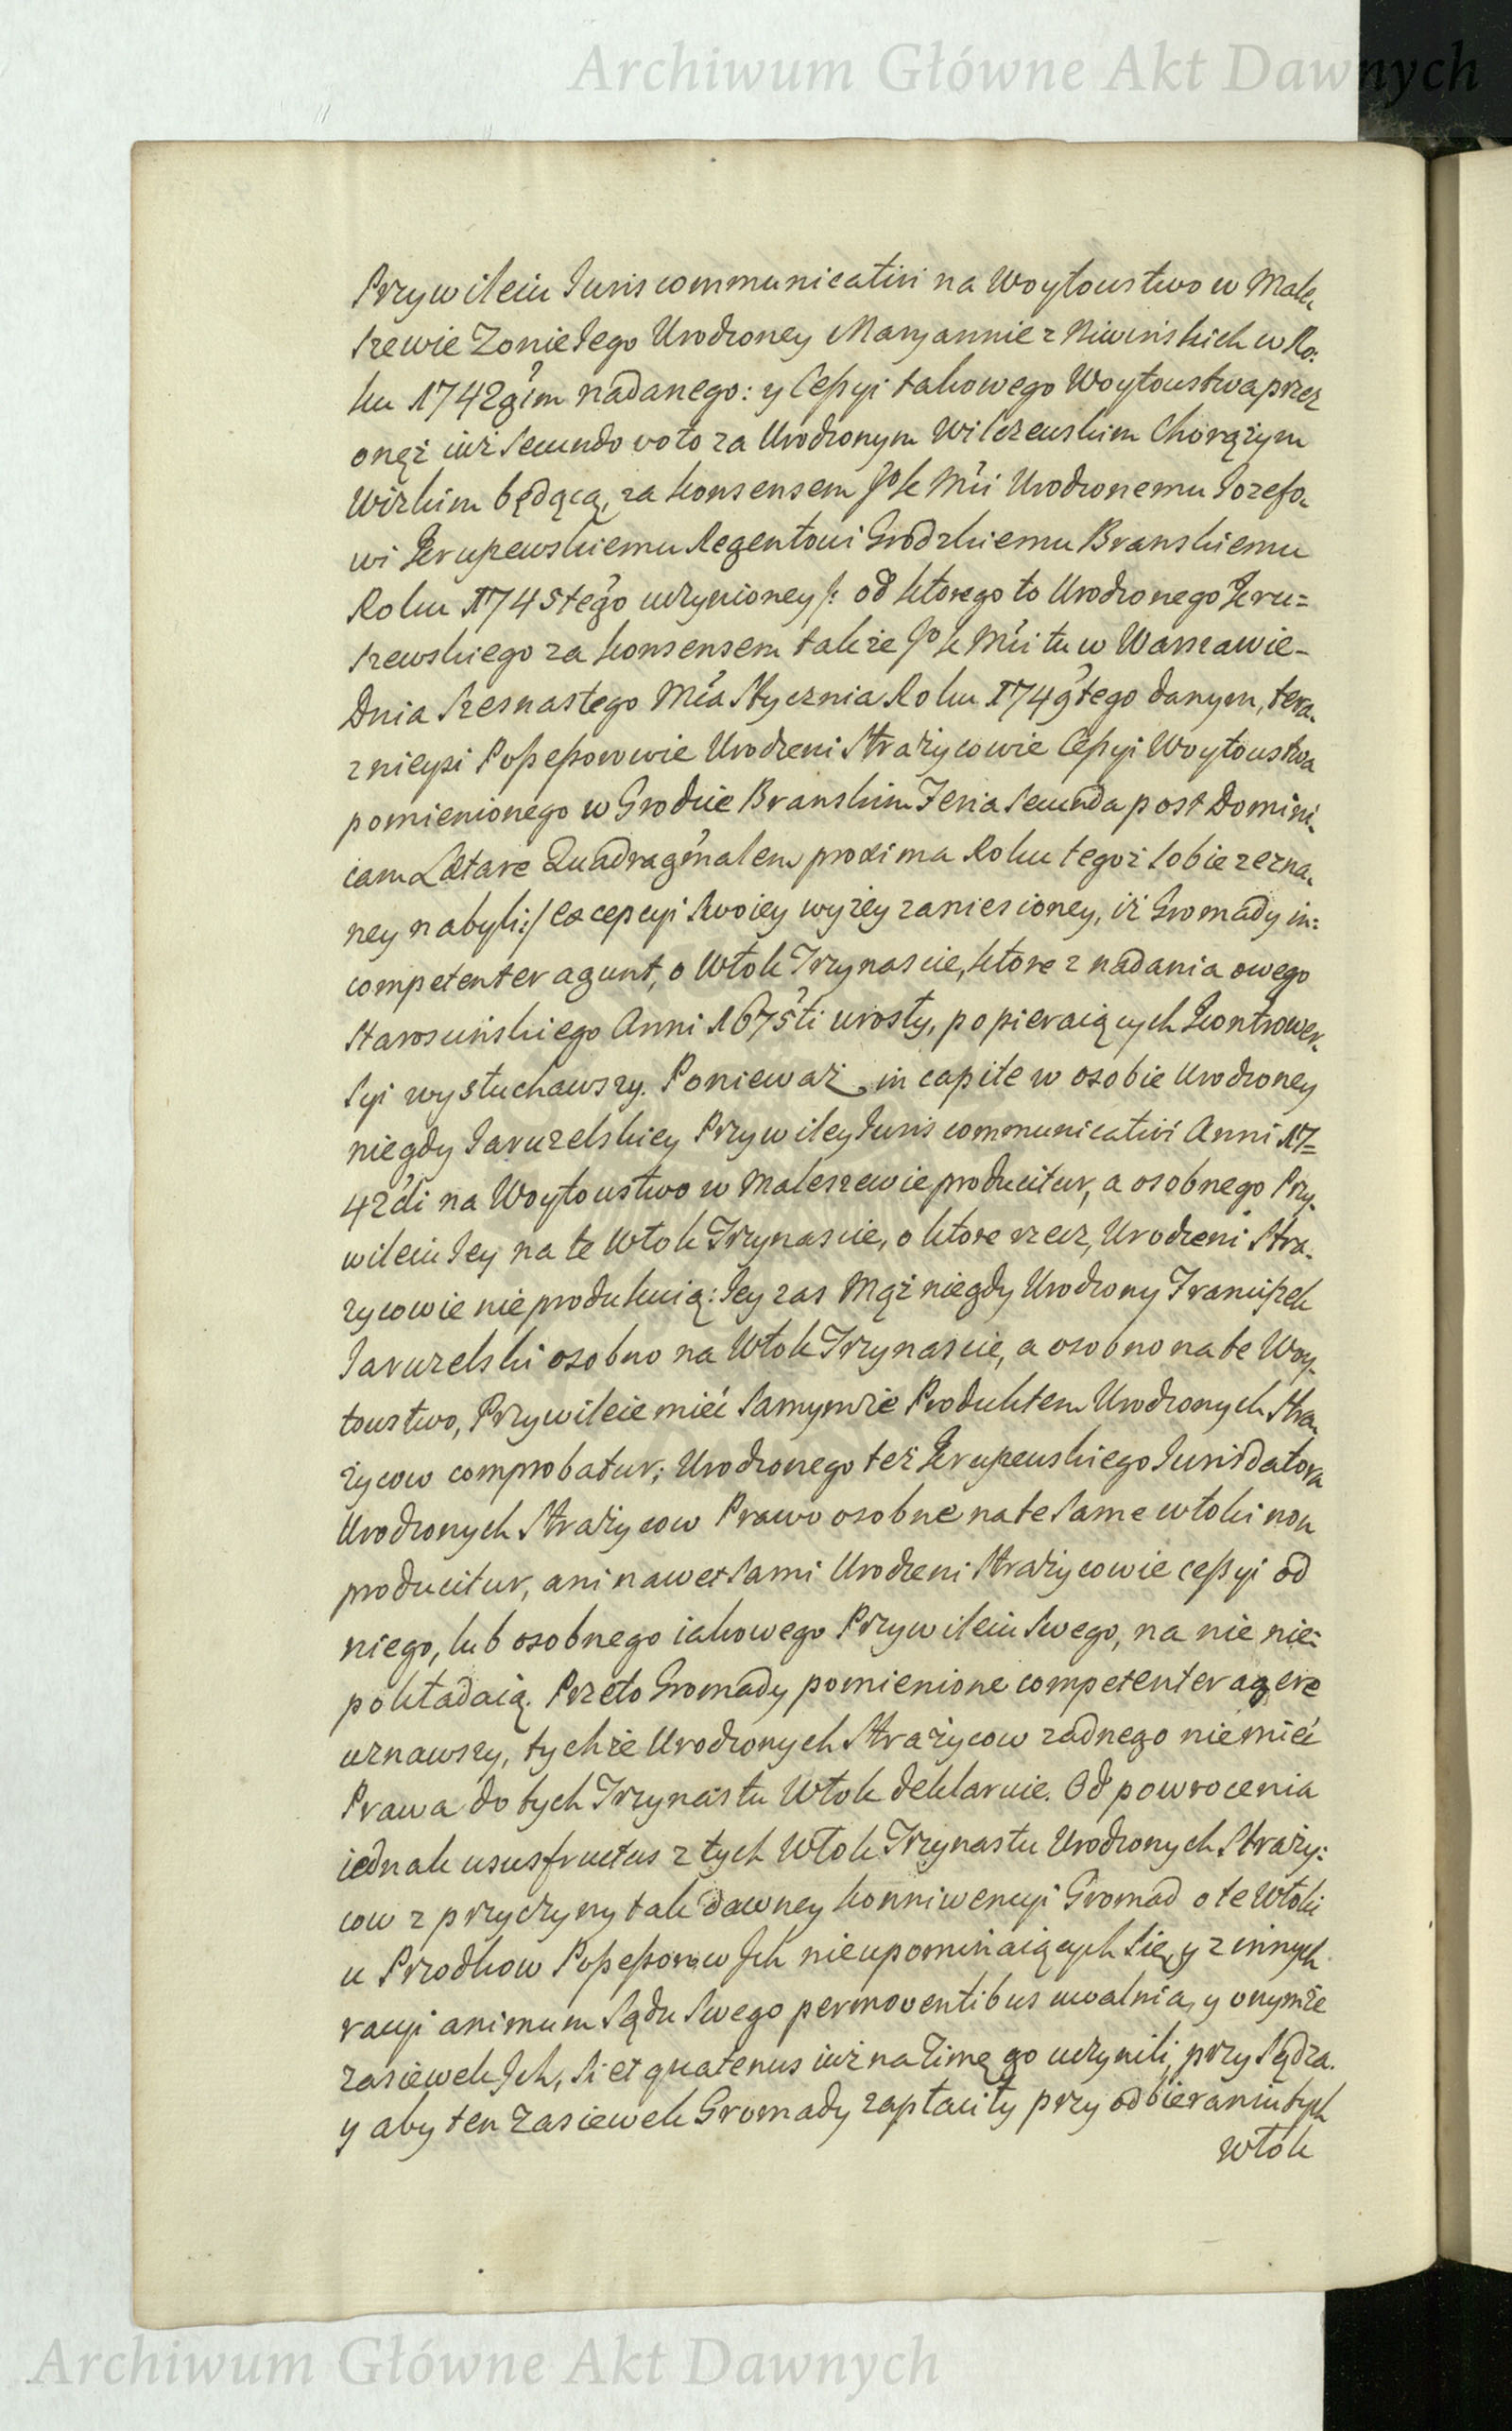 Archiwum Główne Akt Dawnych
Przywileiu Juris communicativi na Woytowstwo w Male
szewie Zonie Jego Urodzoney Maryannie z Niwinskich w Ro:
ku 1742gim nadanego: y Cessyi takowego Woytowstwa przez
onęż iuż secundo voto za Urodzonym Wilczewskim Chorążym
Wizkim będącą, za konsensem JoK Mci Urodzonemu Jozefo
wi Kruszewskiemu Regentowi Grodzkiemu Branskiemu
Roku 1745tego uczynioney /: od ktorego to Urodzonego Kru=
szewskiego za konsensem także JoK Mci tu w Warszawie-
Dnia Szesnastego Mca Stycznia Roku 1749tego danym, tera.
znieysi Possessorowie Urodzeni Strażycowie Cessyi Woytowstwa
pomienionego w Grodzie Branskim Feria Secunda post Domini.
cam Lætare Quadrag'nalem proxima Roku tegoż sobie zezna.
ney nabyli:/ excepcyi swoiey wyżey zaniesioney, iż Gromady in:
competenter agunt, o Włok Trzynascie, ktore z nadania owego
Staroscińskiego Anni 1675ti urosły, popieraiących Kontrower.
syi wysłuchawszy. Ponieważ in capite w osobie Urodzoney
niegdy Jaruzelskiey Przywiley Juris communicativi Anni 17=
42di na Woytowstwo w Maleszewie producitur, a osobnego Przy.
wileiu Jey na te Włok Trzynascie, o ktore rzecz, Urodzeni Stra.
zycowie nie produkuią: Jey zas Mąż niegdy Urodzony Franciszek
Jaruzelski osobno na Włok Trzynascie, a osobno na te Woy.
towstwo, Przywileie mieć samymże Produktem Urodzonych Stra.
życow comprobatur; Urodzonego też Kruszewskiego Juris datora
Urodzonych Strażycow Prawo osobne na te same włoki non
producitur, ani nawet sami Urodzeni Strażycowie cessyi od
niego, lub osobnego iakowego Przywileiu swego, na nie nie=
pokładaią. Przeto Gromady pomienione competenter agere
uznawszy, tychże Urodzonych Strażycow zadnego nie mieć
Prawa do tych Trzynastu Włok deklaruie. Od powrocenia
iednak ususfructus z tych Włok Trzynastu Urodzonych Straży:
cow z przyczyny tak dawney konniwencyi Gromad o te Włoki
u Przodkow Possessorow Jch nieupominaiących się, y z innych
racyi animum Sądu swego permoventibus uwalnia, y onymże
zasiewek Jch, si et quatenus iuż na Zimę go uczynili, przysądza.
y aby ten zasiewek Gromady zapłaciły przy odbieraniu tych
włok
Archiwum Główne Akt Dawnych